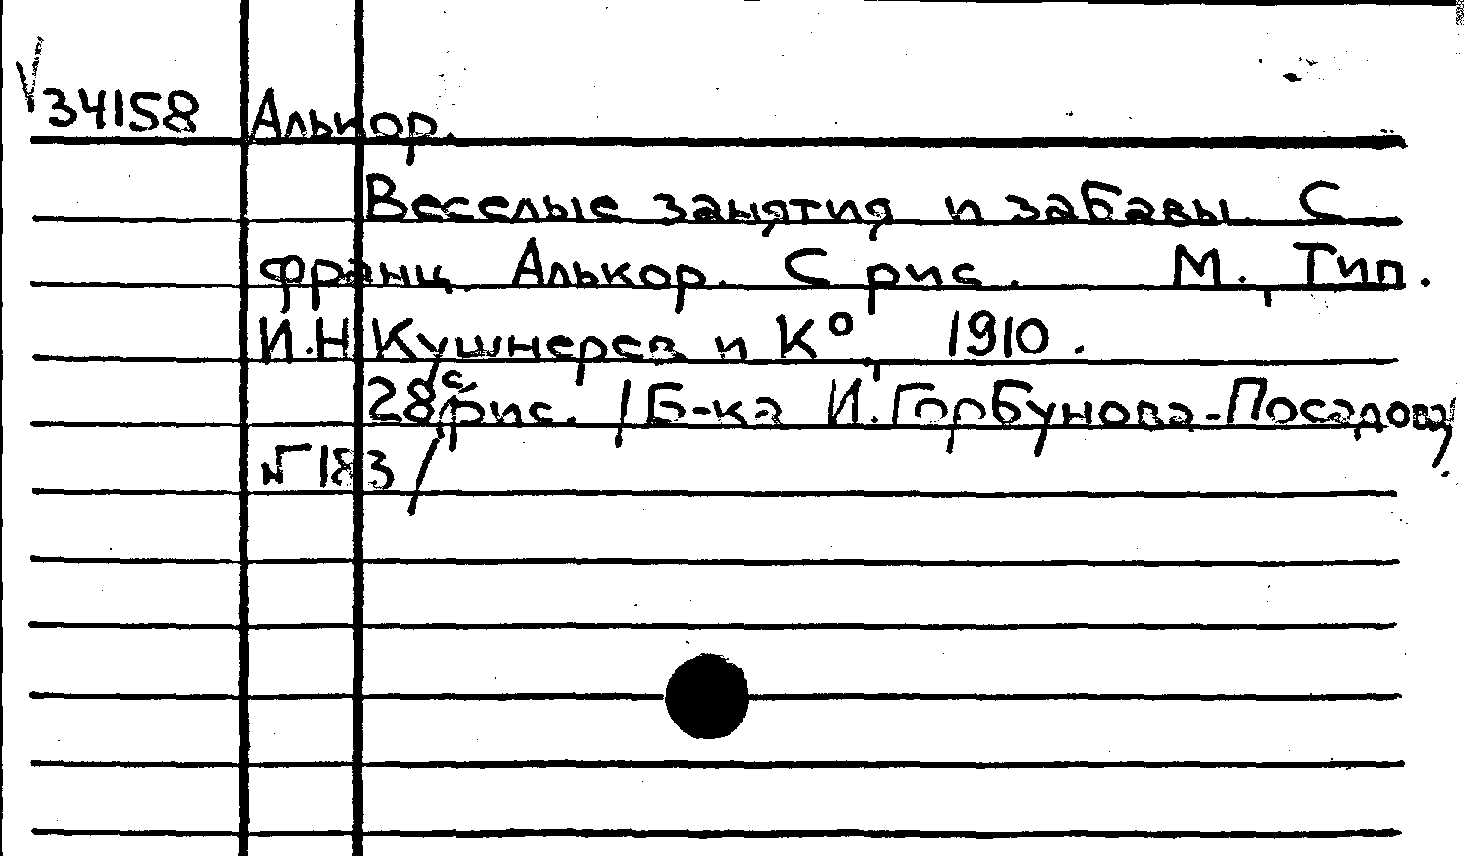 √34158 Алькор.
Веселые занятия и забавы. С
франц. Алькор. С рис. М., Тип.
И.Н.Кушнерев и К°, 1910.
28с., рис. /Б-ка И.Горбунова-Посадова,
№183/